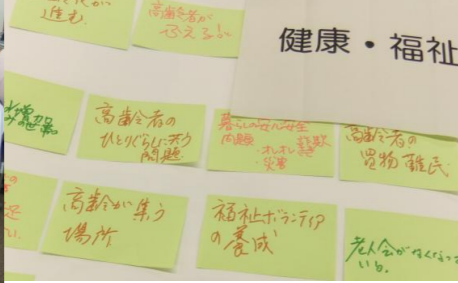 進む.
高齢者が
増える!!
健康・福祉
高齢者の
ひとりぐらしに伴う
問題
暮らしの安心安全
問題
オレオレ詐欺
災害
高齢者の
買物難民
高齢が集う
場所
福祉ボランティア
の養成
老人会がなくなって
いる。